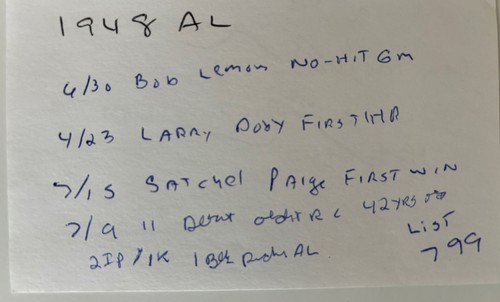 1948 AL
6/30 Bob Lemon NO-HIT Gm
4/23 LARRY DOBY FIRST HR
7/15 SATCHel PAIge FIRST WIN
7/9 " Debut oldest R 42 YRS
2IP 1K 1 AL
LIST
799